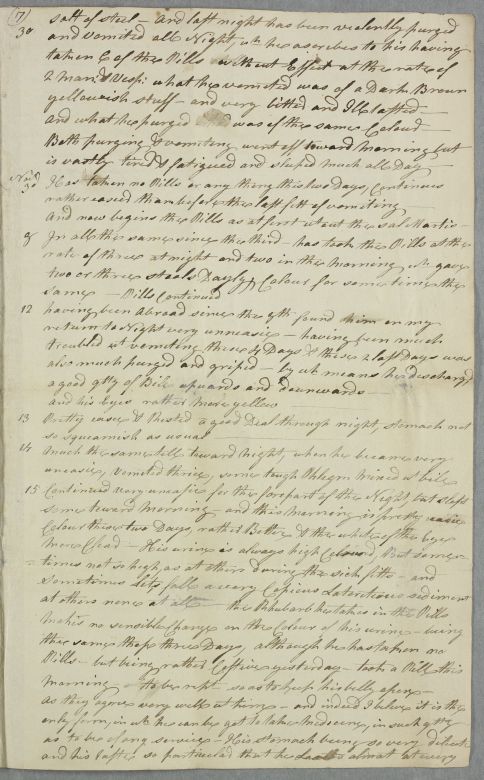 17)
salt of steel – and last night has been violently purged
30 and vomited all Night, wh he ascribes to his having
taken 6 of the Pills without Effect at the rate of
2 Man: & Vesp: what he vomited was of a Dark Brown
yellowish stuff – and very bitter and Ill tasted –
and what he purged was of the same Colour –
Both purging & vomiting went off toward morning but
is vastly tired & fatigued and sleped much all Day –
Novr 3d Has taken no Pills or any thing this two Days, Continues
rather easied than before the last fitt of vomiting –
And now begins the Pills as at first wtout the sal Martis –
8 In all the same since the third – has took the Pills at the
rate of three at night and two in the morning wh gave
two or three stools Dayly, Colour for some time the
same – Pills Continued
12 having been Abroad since the 9th found him on my
return to Night very unneasie – having been much
troubled wt vomiting these 4 Days & these 2 last Days was
also much purged and griped – by wh means he discharged
a good qtty of Bile upwards and downwards –
and his Eyes rather more yellow
13 Pretty easie & Rested a good Deal through night, stomach not
so squeamish as usual
14 Much the same till toward Night, when he became very
uneasie, vomited thrice, some tough Phlegm mixed wt bile
15 Continued very uneasie for the forepart of the Night, but slept
some toward Morning and this Morning is pretty easie
Colour these two Days, rather Better & the white of the Eyes
more Clear – His urine is always high Coloured But some-
-times not so high, as at others during the sick fitts – and
Sometimes lets fall a very Copious Lateritious sediment
at others none at all – the Rhubarb he takes in the Pills
makes no sensible Change on the Colour of his urine – being
the same these three Days, although he has taken no
Pills – but being rather Costive yesterday – took a Pill this
morning – to be rept. so as to keep his belly open –
as they agree very well wt him – and indeed I believe it is the
only form, in wh he can be got to take Medicine, in such qtty
as to be of any service – His stomach being so very delicate
and his taste so particular that he almost at every